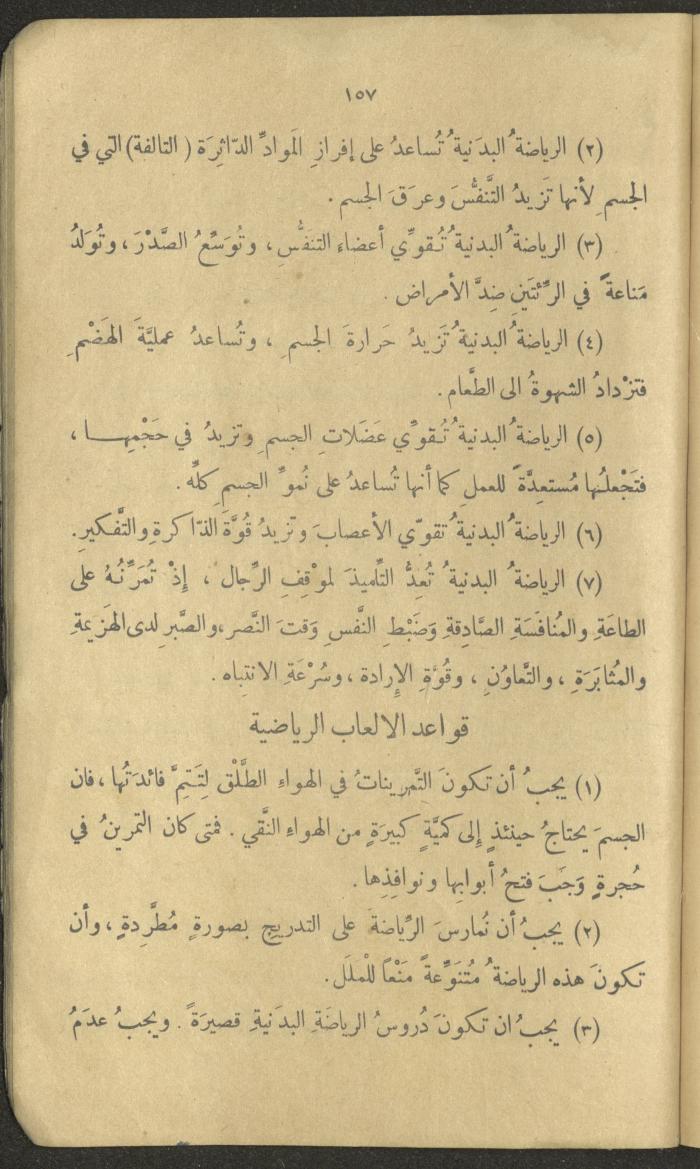 ١٥٧
(٢) الرياضةُ البدَنيةُ تُساعدُ على إفرازِ المَوادِّ الدّاثِرَة (التالفة) التي في
الجسمِ لأنها تَزيدُ التَّنفُّسَ وعرَقَ الجسم.
(٣) الرياضةُ البدنيةُ تُقوِّي أعضاءَ التنفُّسِ، وتُوَسِّعُ الصَّدْرَ، وتُوَلّدُ
مَناعةً في الرِّئتَينِ ضِدَّ الأمراض.
(٤) الرياضةُ البدنيةُ تَزيدُ حَرارةَ الجسمِ، وتُساعدُ عمليَّةَ الهَضْمِ
فتزْدادُ الشهوةُ الى الطَّعام.
(٥) الرياضةُ البدنيةُ تُقوِّي عَضَلاتِ الجسمِ وتزيدُ في حَجْمِها،
فتَجْعلُها مُستعِدَّةً للعملِ كما أنها تُساعدُ على نُموِّ الجسمِ كلِّه.
(٦) الرياضةُ البدنيةُ تقوّي الأعصابَ وتَزيدُ قُوَّةَ الذّاكرةِ والتَّفكيرِ.
(٧) الرياضةُ البدنيةُ تُعِدُّ التِّلميذَ لموْقِفِ الرِّجال، إِذْ تُمَرِّنُهُ على
الطاعَةِ والمُنافَسَةِ الصَّادِقةِ وَضَبْطِ النَّفسِ وَقتَ النَّصر، والصَّبرِ لدى الهَزيمةِ
والمُثابَرَةِ، والتَّعاوُنِ، وقُوَّةِ الإِرادة، وسُرْعَةِ الانتِباه.
قواعد الالعاب الرياضية
(١) يجبُ أن تكونَ التَّمرينَاتُ في الهواءِ الطَّلْق لِتَتِمَّ فائدَتُها، فان
الجسمَ يحتاجُ حينئذٍ إِلى كميَّةٍ كبيرَةٍ من الهواءِ النَّقي. فمتى كان التمرينُ في
حُجرةٍ وَجَبَ فتحُ أبوابِها ونوافِذِها.
(٢) يجبُ أن نُمارسَ الرِّياضةَ على التدريج بصورةٍ مُطَّرِدةٍ، وأن
تكونَ هذه الرياضةُ مُتنَوِّعةً مَنْعًا للْملَل.
(٣) يجبُ ان تكونَ دُروسُ الرياضَةِ البدَنيةِ قصيرَةً. ويجبُ عدَمُ